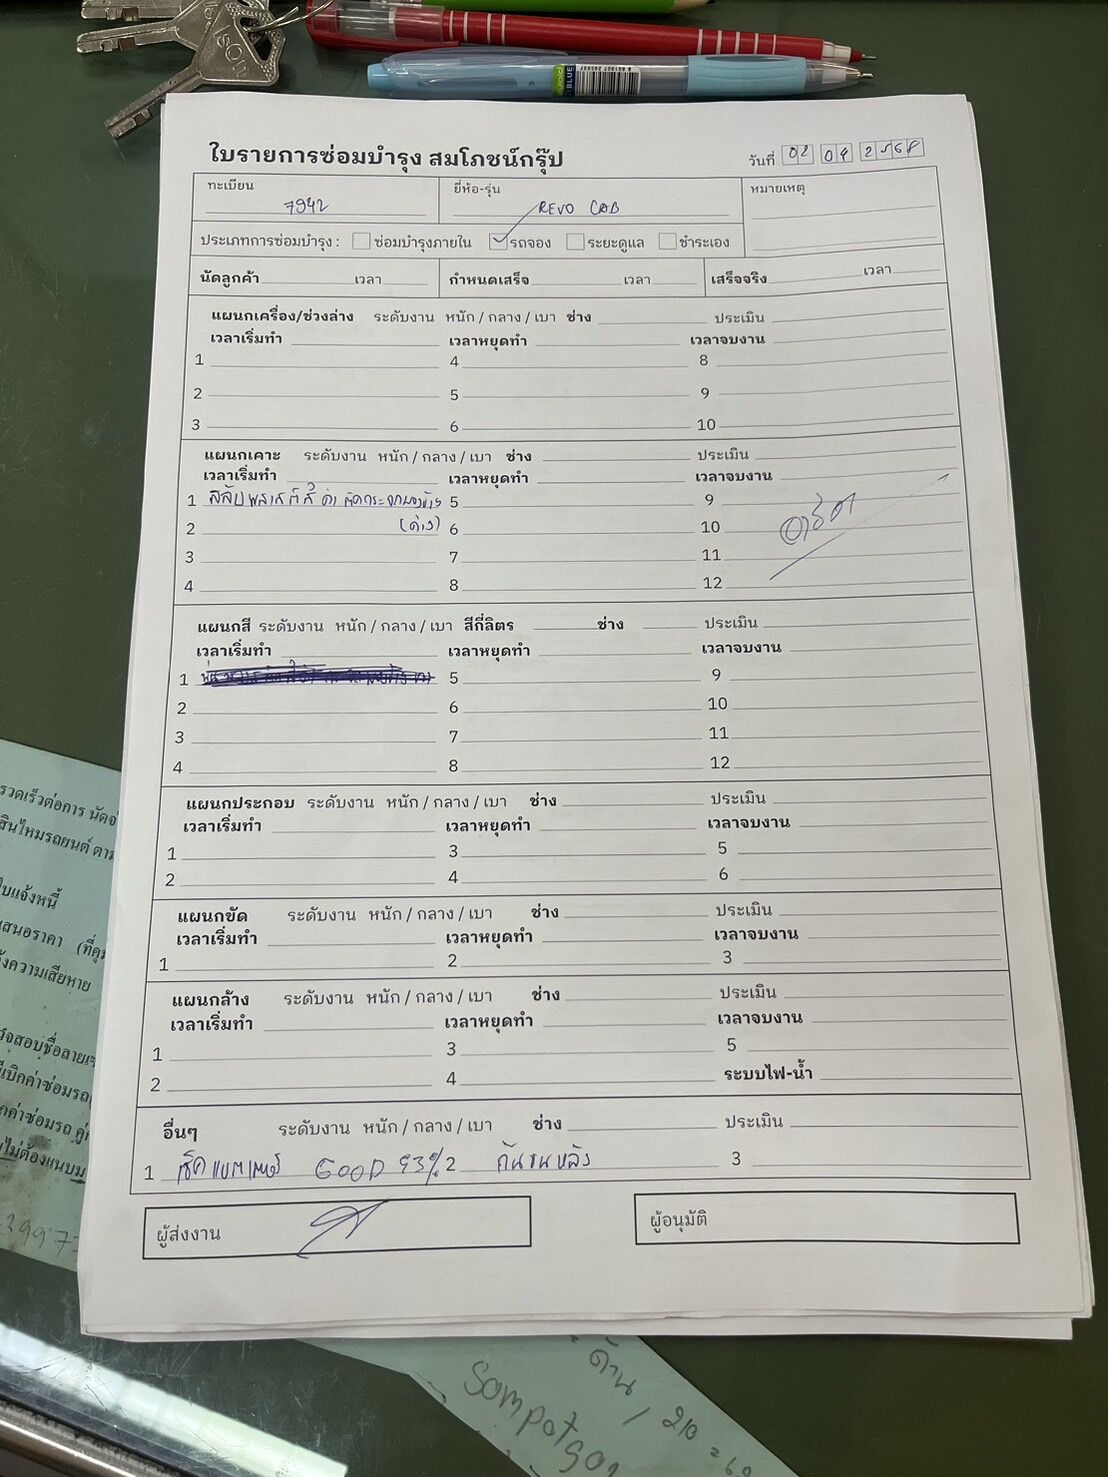 ใบรายการซ่อมบำรุง สมโภชน์กรุ๊ป
วันที่ 02 04 2568
ทะเบียน 7942
ยี่ห้อ-รุ่น REVO CAB
หมายเหตุ
ประเภทการซ่อมบำรุง : ซ่อมบำรุงภายใน รถจอง ระยะดูแล ชำระเอง
นัดลูกค้า เวลา กำหนดเสร็จ เวลา เสร็จจริง เวลา
แผนกเครื่อง/ช่วงล่าง ระดับงาน หนัก / กลาง / เบา ช่าง ประเมิน
เวลาเริ่มทำ เวลาหยุดทำ เวลาจบงาน
1 4 8
2 5 9
3 6 10
แผนกเคาะ ระดับงาน หนัก / กลาง / เบา ช่าง ประเมิน
เวลาเริ่มทำ เวลาหยุดทำ เวลาจบงาน
1 5 9
2 6 10
3 7 11
4 8 12
แผนกสี ระดับงาน หนัก / กลาง / เบา สีกี่ลิตร ช่าง ประเมิน
เวลาเริ่มทำ เวลาหยุดทำ เวลาจบงาน
1 5 9
2 6 10
3 7 11
4 8 12
แผนกประกอบ ระดับงาน หนัก / กลาง / เบา ช่าง ประเมิน
เวลาเริ่มทำ เวลาหยุดทำ เวลาจบงาน
1 3 5
2 4 6
แผนกขัด ระดับงาน หนัก / กลาง / เบา ช่าง ประเมิน
เวลาเริ่มทำ เวลาหยุดทำ เวลาจบงาน
1 2 3
แผนกล้าง ระดับงาน หนัก / กลาง / เบา ช่าง ประเมิน
เวลาเริ่มทำ เวลาหยุดทำ เวลาจบงาน
1 3 5
2 4 ระบบไฟ-น้ำ
อื่นๆ ระดับงาน หนัก / กลาง / เบา ช่าง ประเมิน
1 เช็คแบตเตอรี่ GOOD 93% 2 กันชนหลัง 3
ผู้ส่งงาน ผู้อนุมัติ
รวดเร็วต่อการ นัด
สินไหมรถยนต์ ตาม
ใบแจ้งหนี้
สนอราคา (ที่คุม
งความเสียหาย
ด้าน / 210